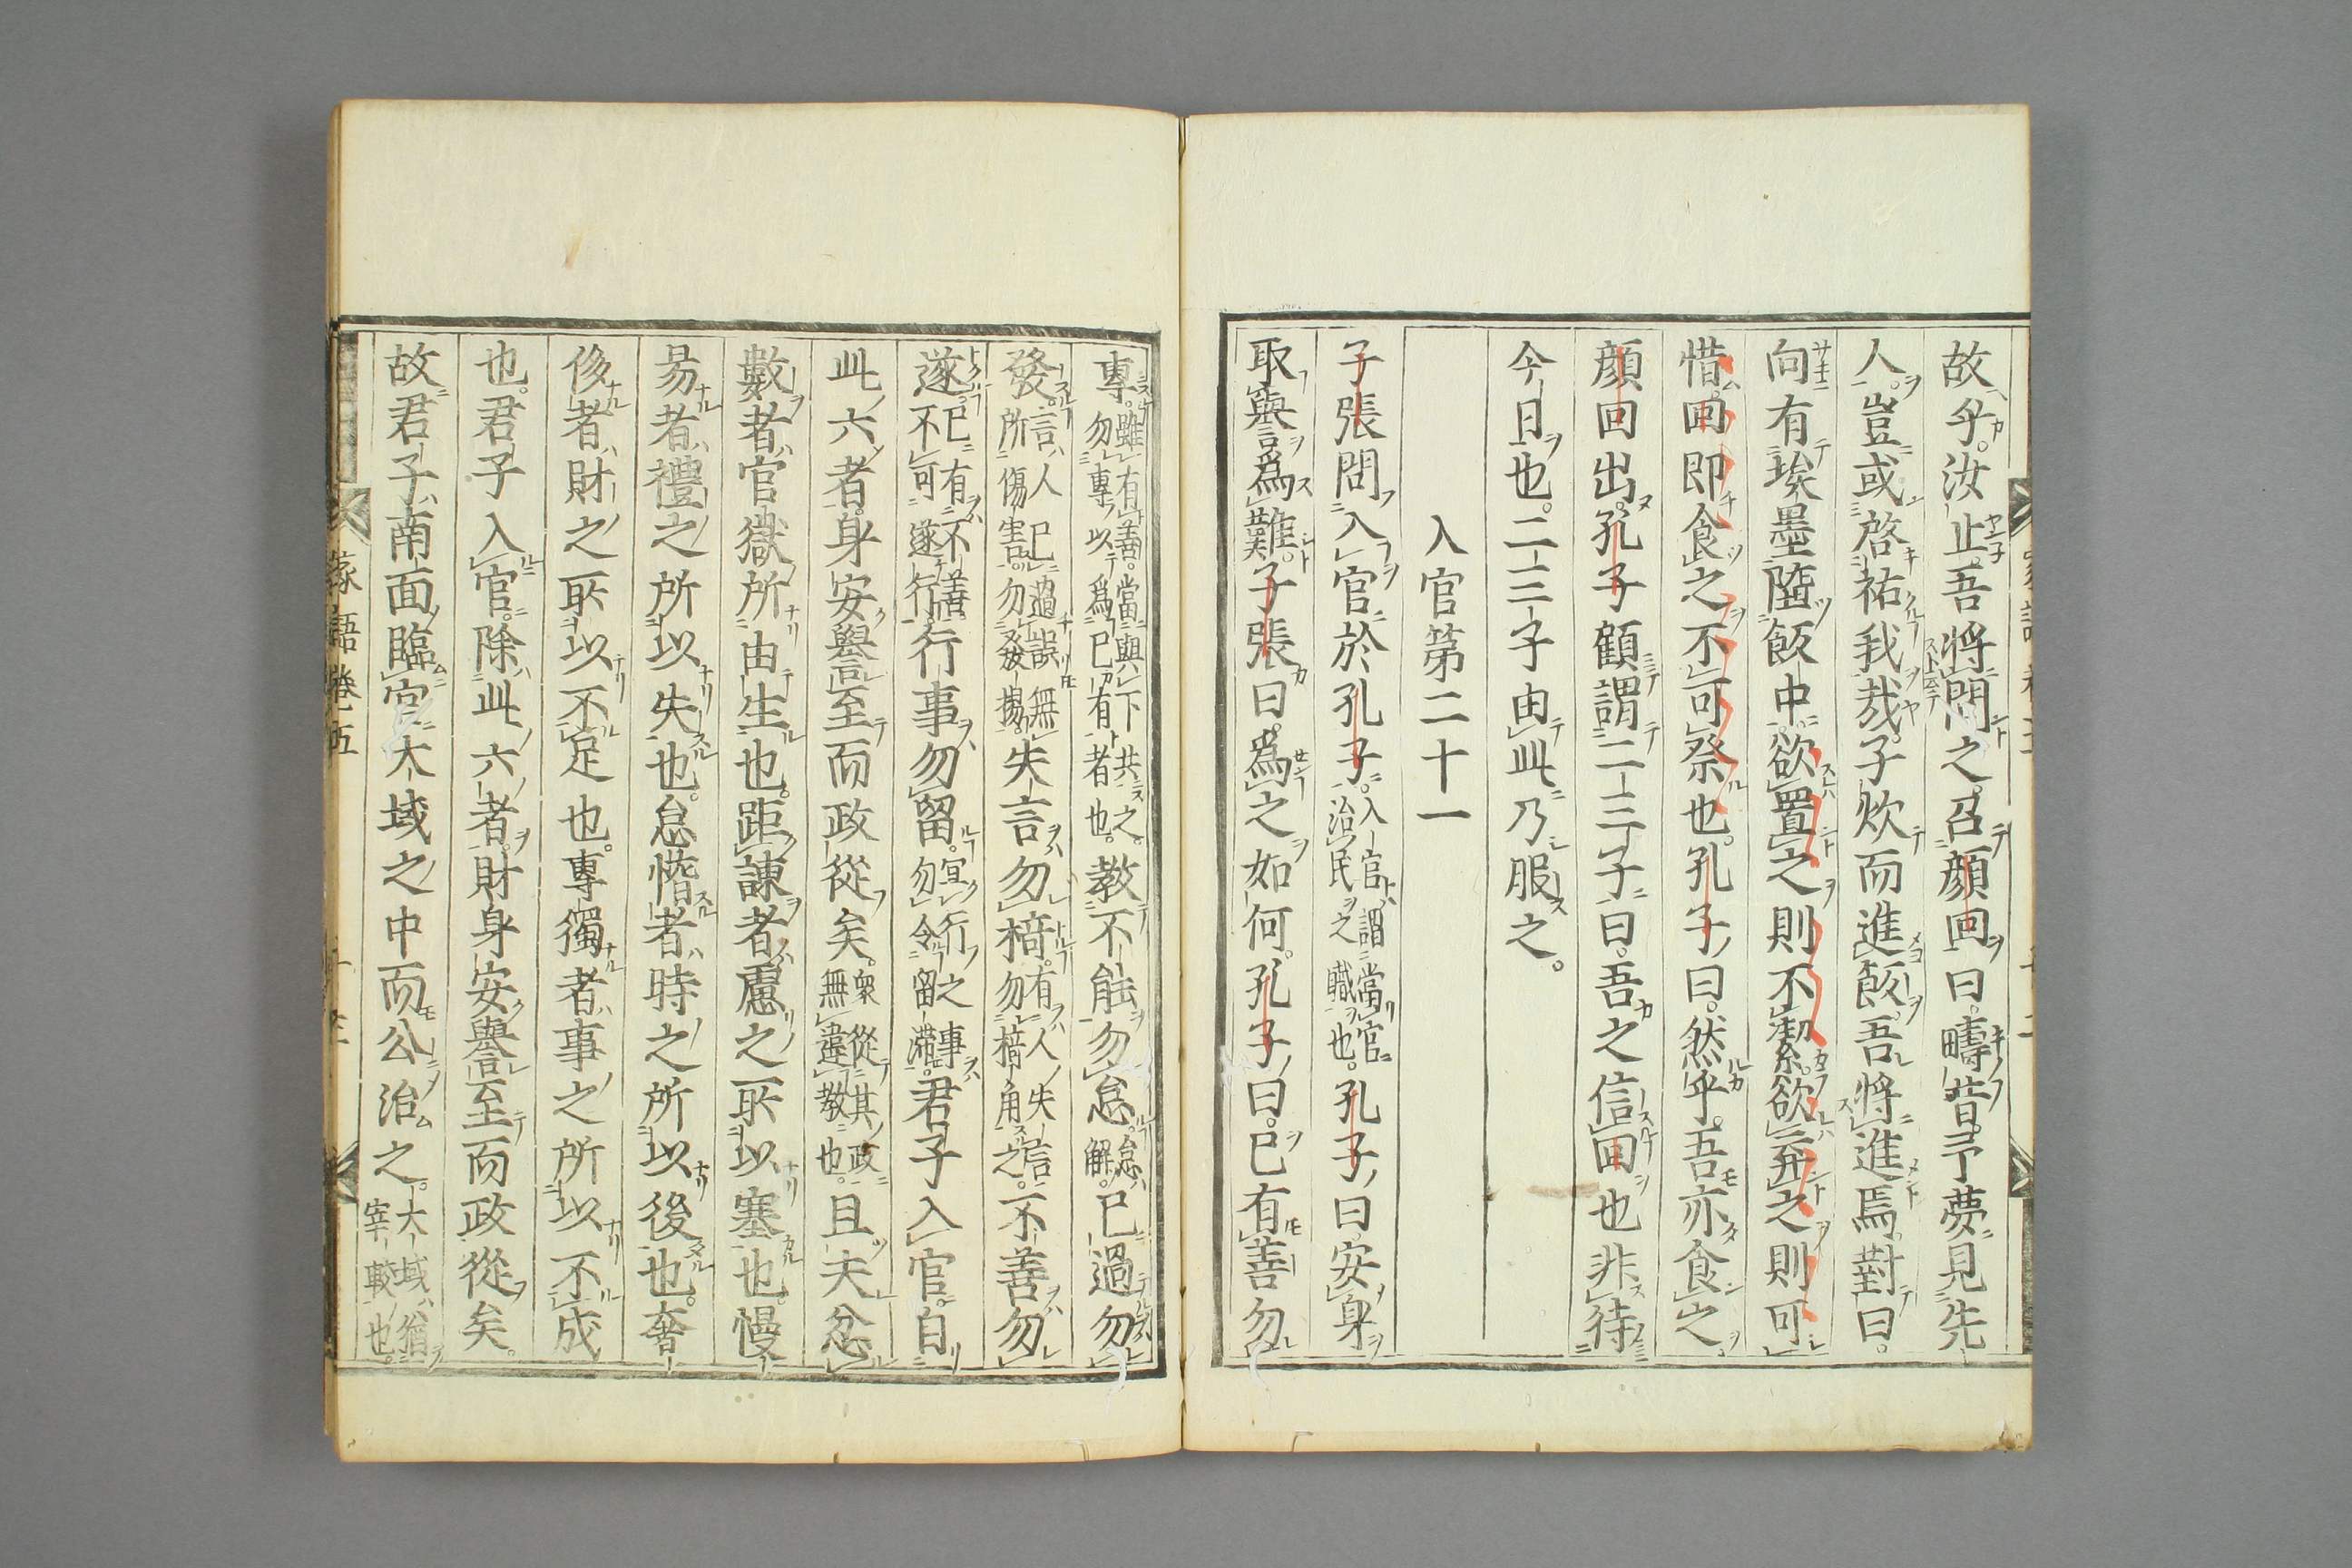 故乎。汝止。吾將問之。召顔回曰。疇昔予夢見先
人。豈或啓祐我哉。子炊而進飯。吾將進焉。對曰。
向有埃墨墮飯中。欲置之則不潔。欲弃之則可
惜。回即食之。不可祭也。孔子曰。然乎。吾亦食之。
顔回出。孔子顧謂二三子曰。吾之信回也非待
今日也。二三子由此乃服之。
入官第二十一
子張問入官於孔子。入官謂當官治民之職也。孔子曰。安身
取譽爲難。子張曰。爲之如何。孔子曰。已有善勿
專。雖有善。當與下共之。勿專以爲已有者也。教不能勿怠。怠解。已過勿
發。言人已過誤無所傷害。勿發揚。失言勿掎。有人失言勿掎角之。不善勿
遂。已有不善不可遂行。行事勿留。宜行之事勿令留滯。君子入官。自
此六者。身安譽至而政從矣。衆從其政無違教也。且夫忿
數者。官獄所由生也。距諫者。慮之所以塞也。慢
易者。禮之所以失也。怠惰者。時之所以後也。奢
侈者。財之所以不足也。專獨者。事之所以不成
也。君子入官。除此六者。財身安譽至而政從矣。
故君子南面臨官。大域之中而公治之。大域猶宰較也。
家語卷五